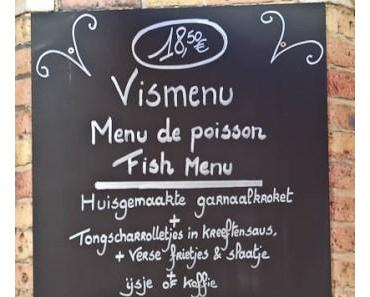 18,50€
Vismenu
Menu de poisson
Fish Menu
Huisgemaakte garnaalkroket
+
Tongscharrolletjes in kreeftensaus,
+ verse frietjes & slaatje
+
ijsje of koffie